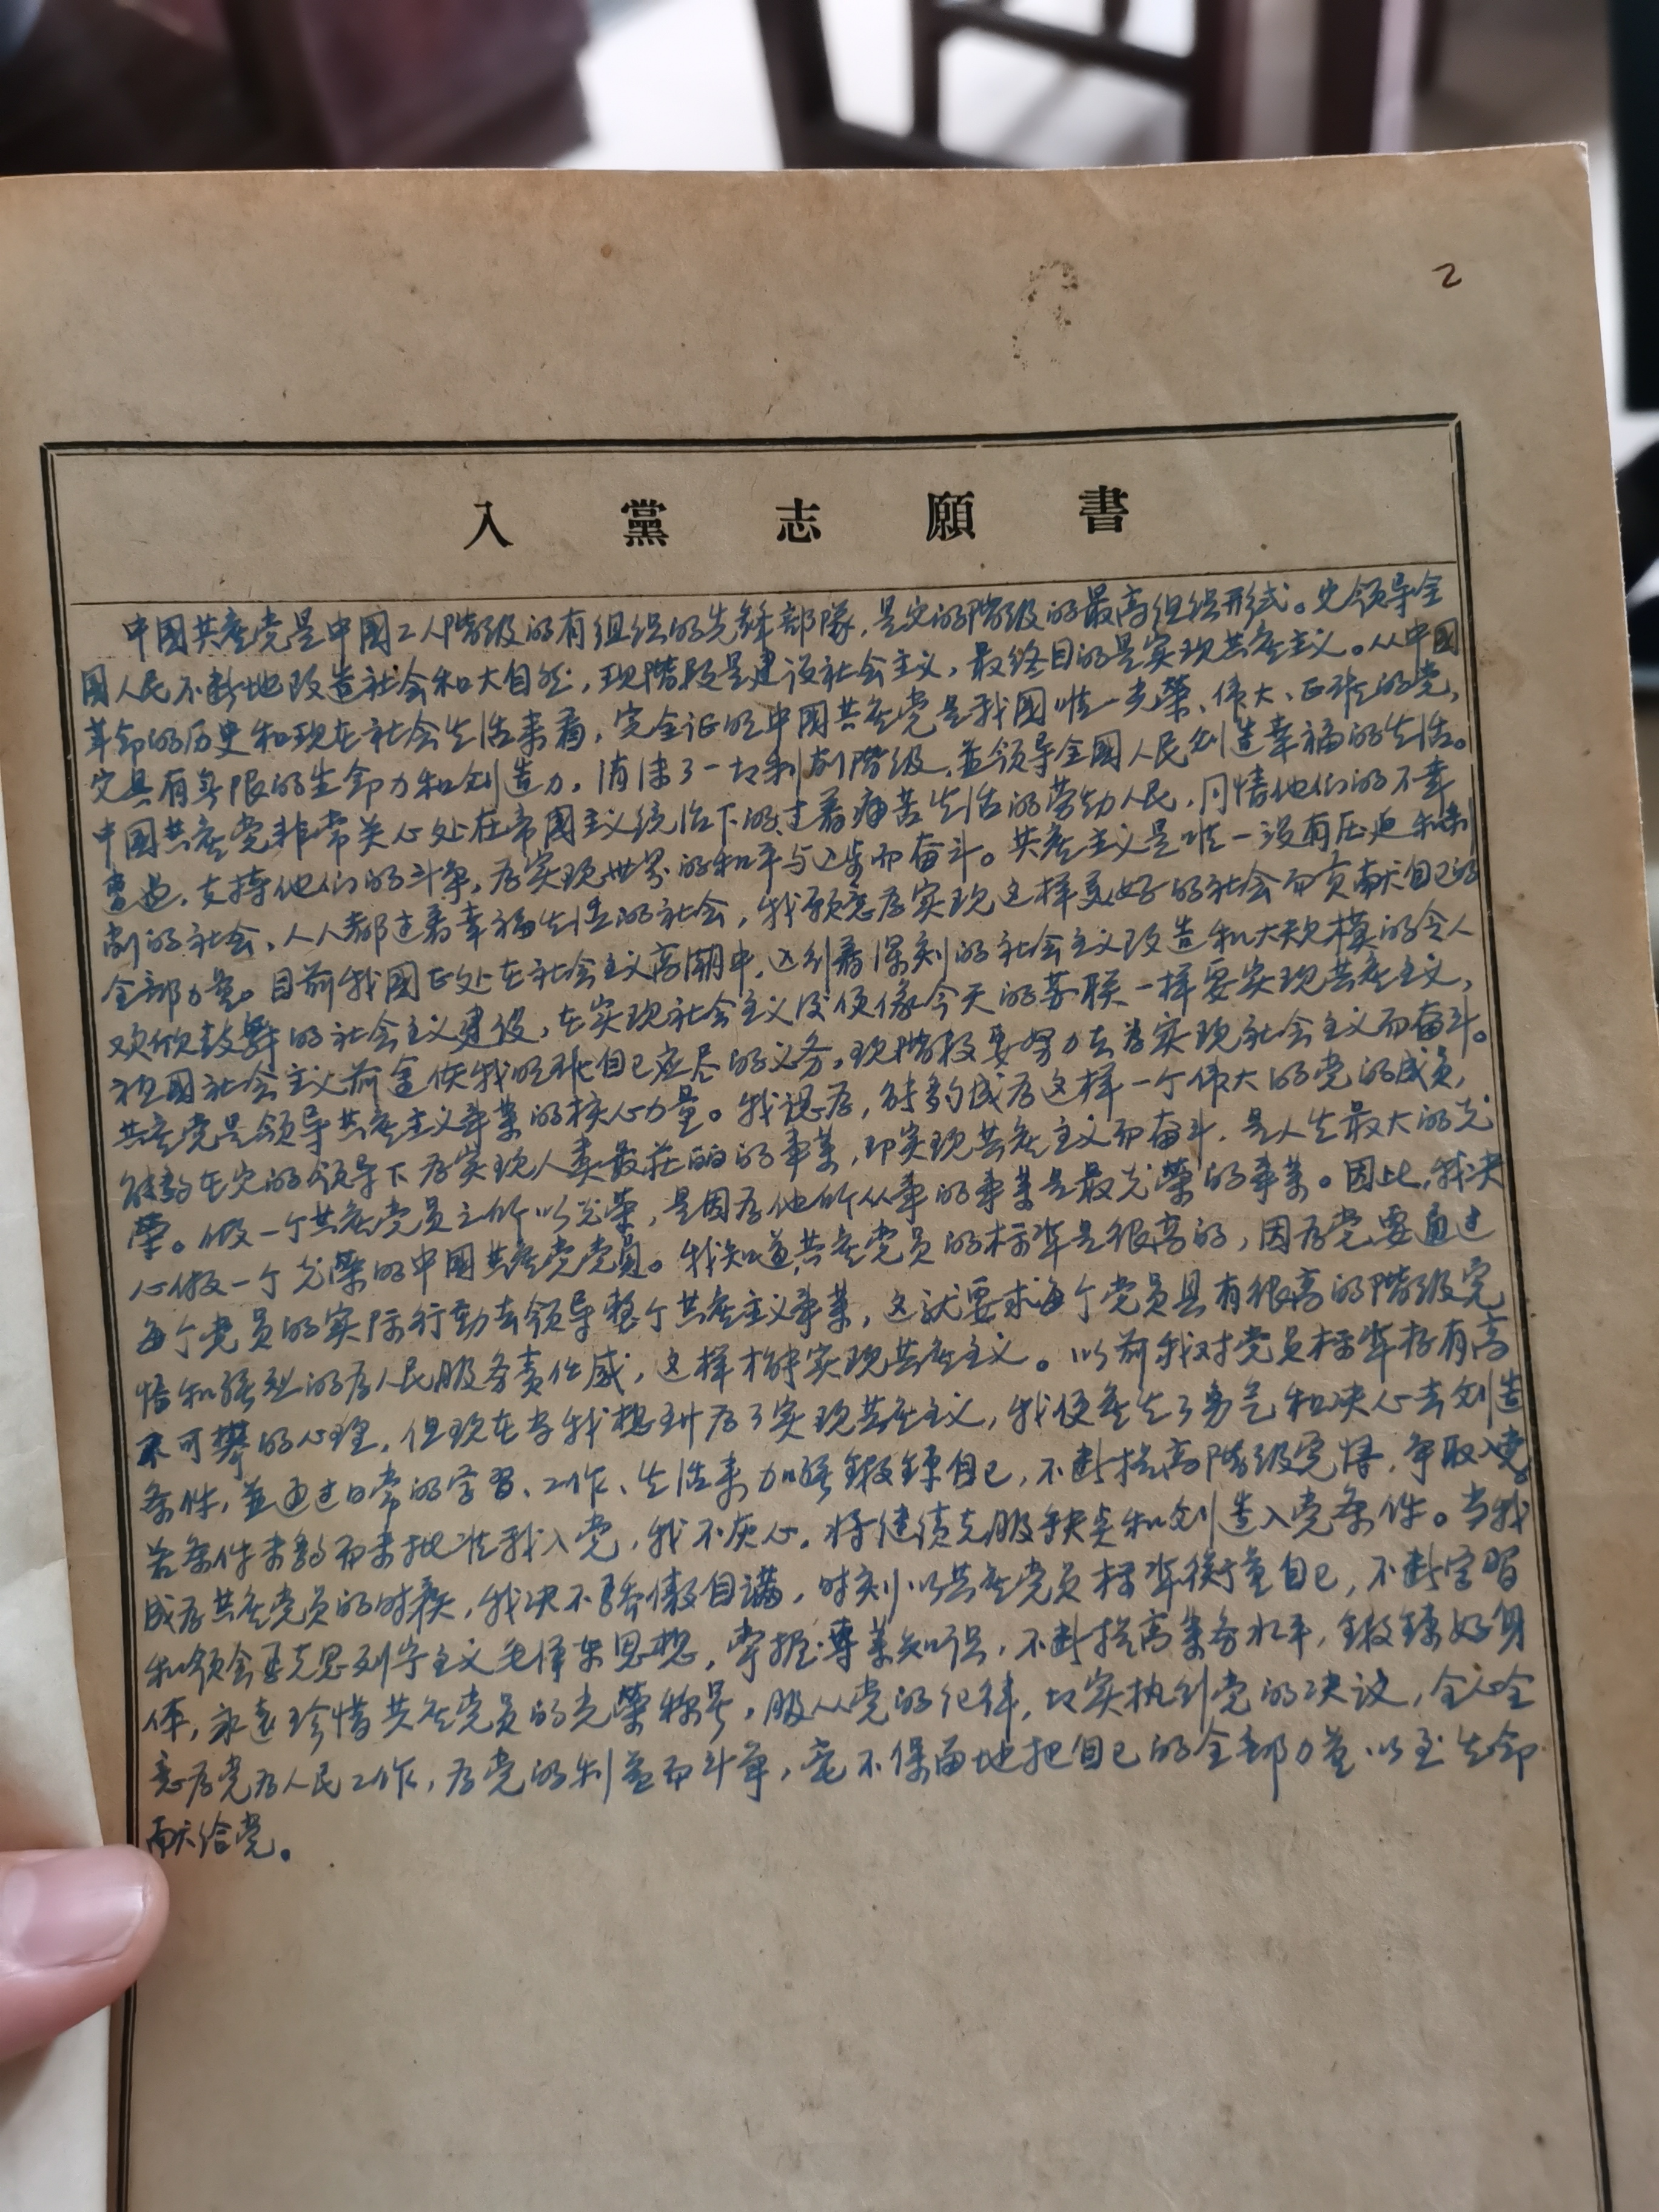 2
入黨志願書
中国共産党是中国工人階级的有组织的先鋒部隊，是它的階级的最高组织形式。它领导全
國人民不断地改造社会和大自然，现階段是建设社会主义，最终目的是实现共产主义。从中國
革命的历史和现在社会生活来看，完全证明中國共产党是我國唯一光榮、伟大、正确的党，
它具有無限的生命力和创造力，消滅了一切剥削階级，並领导全國人民创造幸福的生活。
中國共产党非常关心处在帝國主义统治下的过着痛苦生活的劳动人民，同情他们的不幸
遭遇，支持他们的斗争，为实现世界的和平与进步而奋斗。共产主义是唯一没有压迫和剥
削的社会，人人都过着幸福生活的社会，我願意为实现这样美好的社会而贡献自己的
全部力量。目前我國正处在社会主义高潮中，进行着深刻的社会主义改造和大规模的令人
欢欣鼓舞的社会主义建设，在实现社会主义后便像今天的苏联一样要实现共产主义，
祖國社会主义前途使我明确自己应尽的义务，现階段要努力去为实现社会主义而奋斗。
共产党是领导共产主义事業的核心力量。我认为，能够成为这样一个伟大的党的成员，
能够在它的领导下为实现人类最莊严的事業，即实现共产主义而奋斗，是人生最大的光
榮。做一个共产党员之所以光榮，是因为他所从事的事業是最光榮的事業。因此，我决
心做一个光榮的中國共产党党员。我知道共产党员的标準是很高的，因为党要通过
每个党员的实际行动去领导整个共产主义事業，这就要求每个党员具有很高的階级觉
悟和强烈的为人民服务责任感，这样才能实现共产主义。以前我对党员标準存有高
不可攀的心理，但现在当我想到为了实现共产主义，我便产生了勇气和决心去创造
条件，並通过日常的学習、工作、生活来加强鍛鍊自己，不断提高階级觉悟，争取入党。
若条件未够而未批准我入党，我不灰心，将继续克服缺点和创造入党条件。当我
成为共产党员的时候，我决不骄傲自满，时刻以共产党员标準衡量自己，不断学習
和领会马克思列宁主义毛泽东思想，掌握專業知识，不断提高業务水平，鍛鍊好身
体，永远珍惜共产党员的光榮称号，服从党的纪律，切实执行党的决议，全心全
意为党为人民工作，为党的利益而斗争，毫不保留地把自己的全部力量以至生命
献给党。